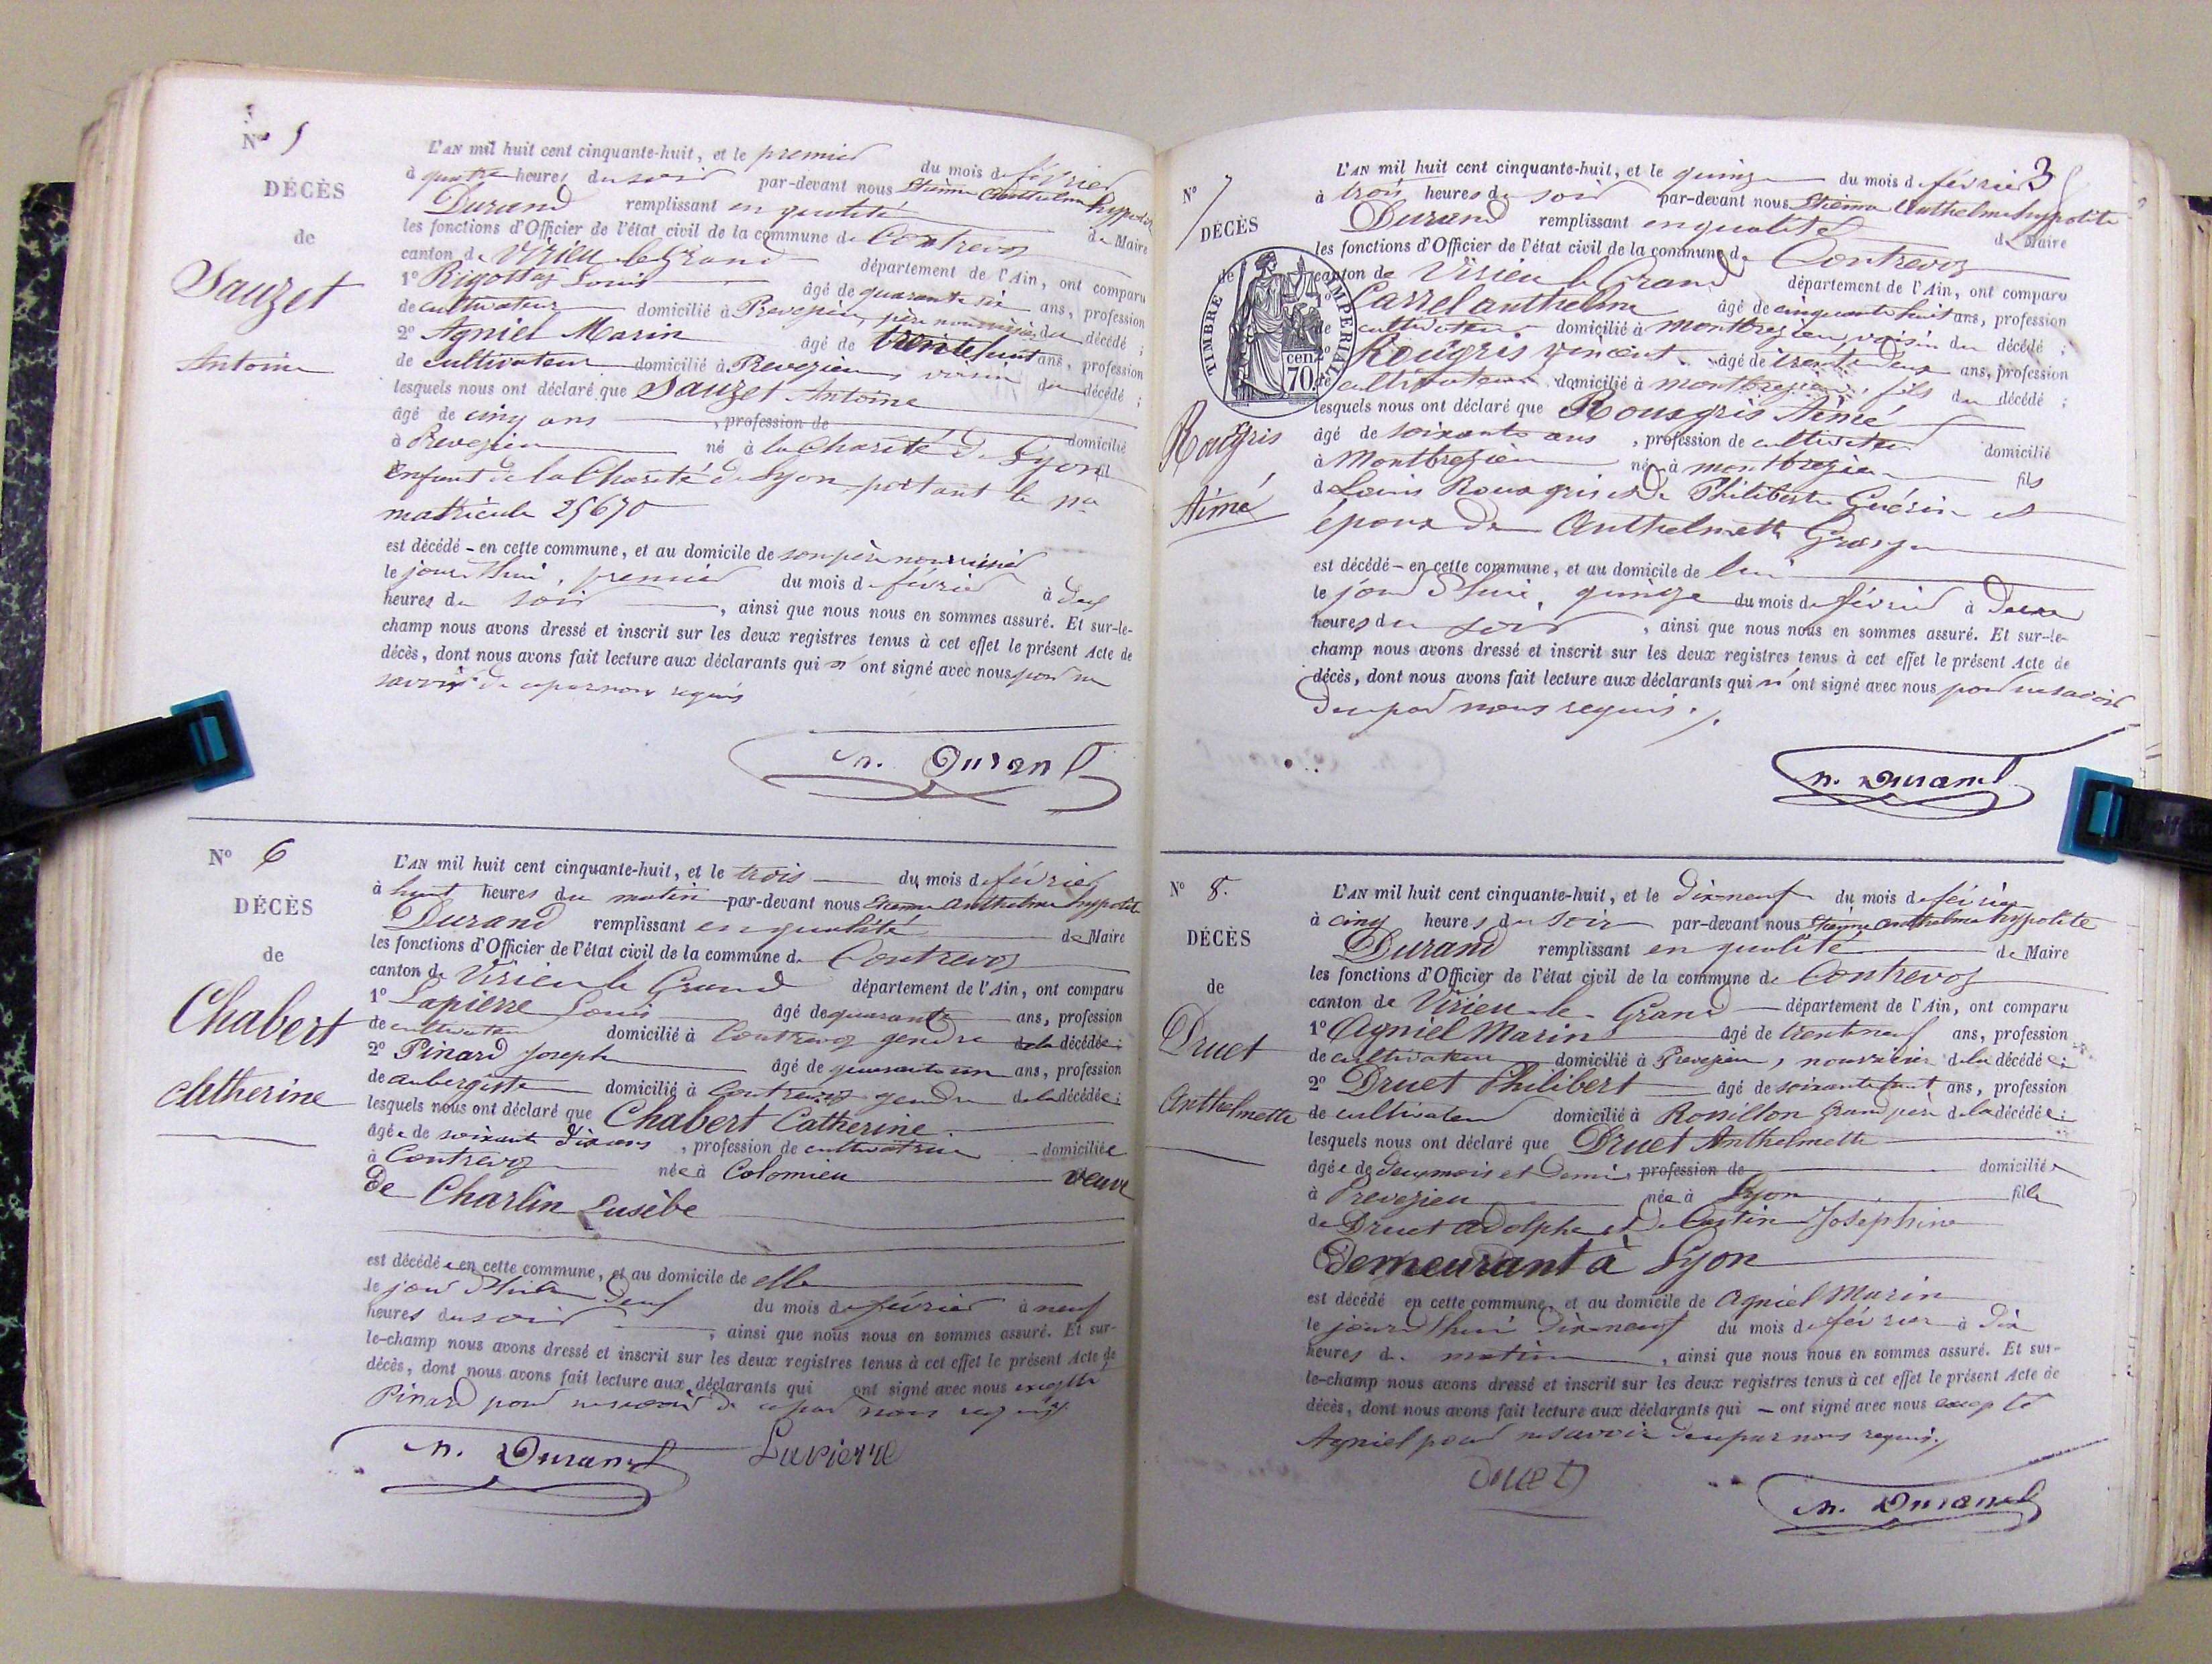 Nº 5
DÉCÈS
de
Sauzet
Antoine
L'AN mil huit cent cinquante-huit, et le premier du mois de février
à quatre heures du soir par-devant nous Etienne Anthelme hyppolite
Durand remplissant en qualité de Maire
les fonctions d'Officier de l'état civil de la commune de Contrevoz
canton de Virieu le Grand département de l'Ain, ont comparu
1º Rigottaz Louis âgé de quarante six ans, profession
de cultivateur domicilié à Prevezieu, père nourricier du décédé ;
2º Agniel Marin âgé de trente huit ans, profession
de cultivateur domicilié à Prevezieu, voisin du décédé ;
lesquels nous ont déclaré que Sauzet Antoine
âgé de cinq ans, profession de domicilié
à Prevezieu né à la Charité de Lyon
Enfant de la Charité de Lyon portant le nº
matricule 25670
est décédé - en cette commune, et au domicile de son père nourricier
le jourd'hui, premier du mois de février à deux
heures du soir, ainsi que nous nous en sommes assuré. Et sur-le-
champ nous avons dressé et inscrit sur les deux registres tenus à cet effet le présent Acte de
décès, dont nous avons fait lecture aux déclarants qui n'ont signé avec nous pour ne
savoir de ce par nous requis
n. Durand
Nº 6
DÉCÈS
de
Chabert
Catherine
L'AN mil huit cent cinquante-huit, et le trois du mois de février
à huit heures du matin par-devant nous Etienne Anthelme hyppolite
Durand remplissant en qualité de Maire
les fonctions d'Officier de l'état civil de la commune de Contrevoz
canton de Virieu le Grand département de l'Ain, ont comparu
1º Lapierre Louis âgé de quarante ans, profession
de cultivateur domicilié à Contrevoz gendre de la décédée ;
2º Pinard Joseph âgé de quarante un ans, profession
de aubergiste domicilié à Contrevoz gendre de la décédée ;
lesquels nous ont déclaré que Chabert Catherine
âgée de soixante dix ans, profession de cultivatrice domiciliée
à Contrevoz née à Colomieu veuve
De Charlin Eusèbe
est décédée en cette commune, et au domicile de elle
le jour d'hier deux du mois de février à neuf
heures du soir, ainsi que nous nous en sommes assuré. Et sur-
le-champ nous avons dressé et inscrit sur les deux registres tenus à cet effet le présent Acte de
décès, dont nous avons fait lecture aux déclarants qui ont signé avec nous excepté
Pinard pour ne savoir de ce par nous requis
n. Durand Lapierre
3
Nº 7
DÉCÈS
de
TIMBRE IMPERIAL
70 cen.
Rouxgris
Aimé
L'AN mil huit cent cinquante-huit, et le quinze du mois de février
à trois heures du soir par-devant nous Etienne Anthelme hyppolite
Durand remplissant en qualité de Maire
les fonctions d'Officier de l'état civil de la commune de Contrevoz
canton de Virieu le Grand département de l'Ain, ont comparu
1º Carrel anthelme âgé de cinquante huit ans, profession
de cultivateur domicilié à montbrezieu, voisin du décédé ;
2º Rouxgris vincent âgé de trente deux ans, profession
de cultivateur domicilié à montbrezieu, fils du décédé ;
lesquels nous ont déclaré que Rouxgris Aimé
âgé de soixante ans, profession de cultivateur domicilié
à Montbrezieu né à montbrezieu fils
de Louis Rouxgris et de Philiberte Guérin et
époux de Anthelmette
est décédé - en cette commune, et au domicile de lui
le jourd'hui, quinze du mois de février à deux
heures du soir, ainsi que nous nous en sommes assuré. Et sur-le-
champ nous avons dressé et inscrit sur les deux registres tenus à cet effet le présent Acte de
décès, dont nous avons fait lecture aux déclarants qui n'ont signé avec nous pour ne savoir
de ce par nous requis.
n. Durand
Nº 8.
DÉCÈS
de
Druet
Anthelmette
L'AN mil huit cent cinquante-huit, et le dix-neuf du mois de février
à cinq heures du soir par-devant nous Etienne Anthelme hyppolite
Durand remplissant en qualité de Maire
les fonctions d'Officier de l'état civil de la commune de Contrevoz
canton de Virieu-le-Grand département de l'Ain, ont comparu
1º Agniel Marin âgé de trente neuf ans, profession
de cultivateur domicilié à Prevezieu, nourricier de la décédée ;
2º Druet Philibert âgé de soixante huit ans, profession
de cultivateur domicilié à Rossillon Grand père de la décédée ;
lesquels nous ont déclaré que Druet Anthelmette
âgée de deux mois et demi, profession de domiciliée
à Prevezieu née à Lyon fille
de Druet Adolphe et de Josephine
Demeurant à Lyon
est décédé en cette commune, et au domicile de Agniel Marin
le jourd'hui dix-neuf du mois de février à dix
heures du matin, ainsi que nous nous en sommes assuré. Et sur-
le-champ nous avons dressé et inscrit sur les deux registres tenus à cet effet le présent Acte de
décès, dont nous avons fait lecture aux déclarants qui - ont signé avec nous excepté
Agniel pour ne savoir de ce par nous requis
Druet n. Durand